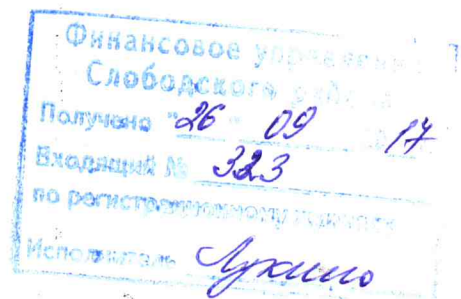 Финансовое управление
Слободского района
Получено "26" 09 17
Входящий № 323
по регистрационному
Исполнитель